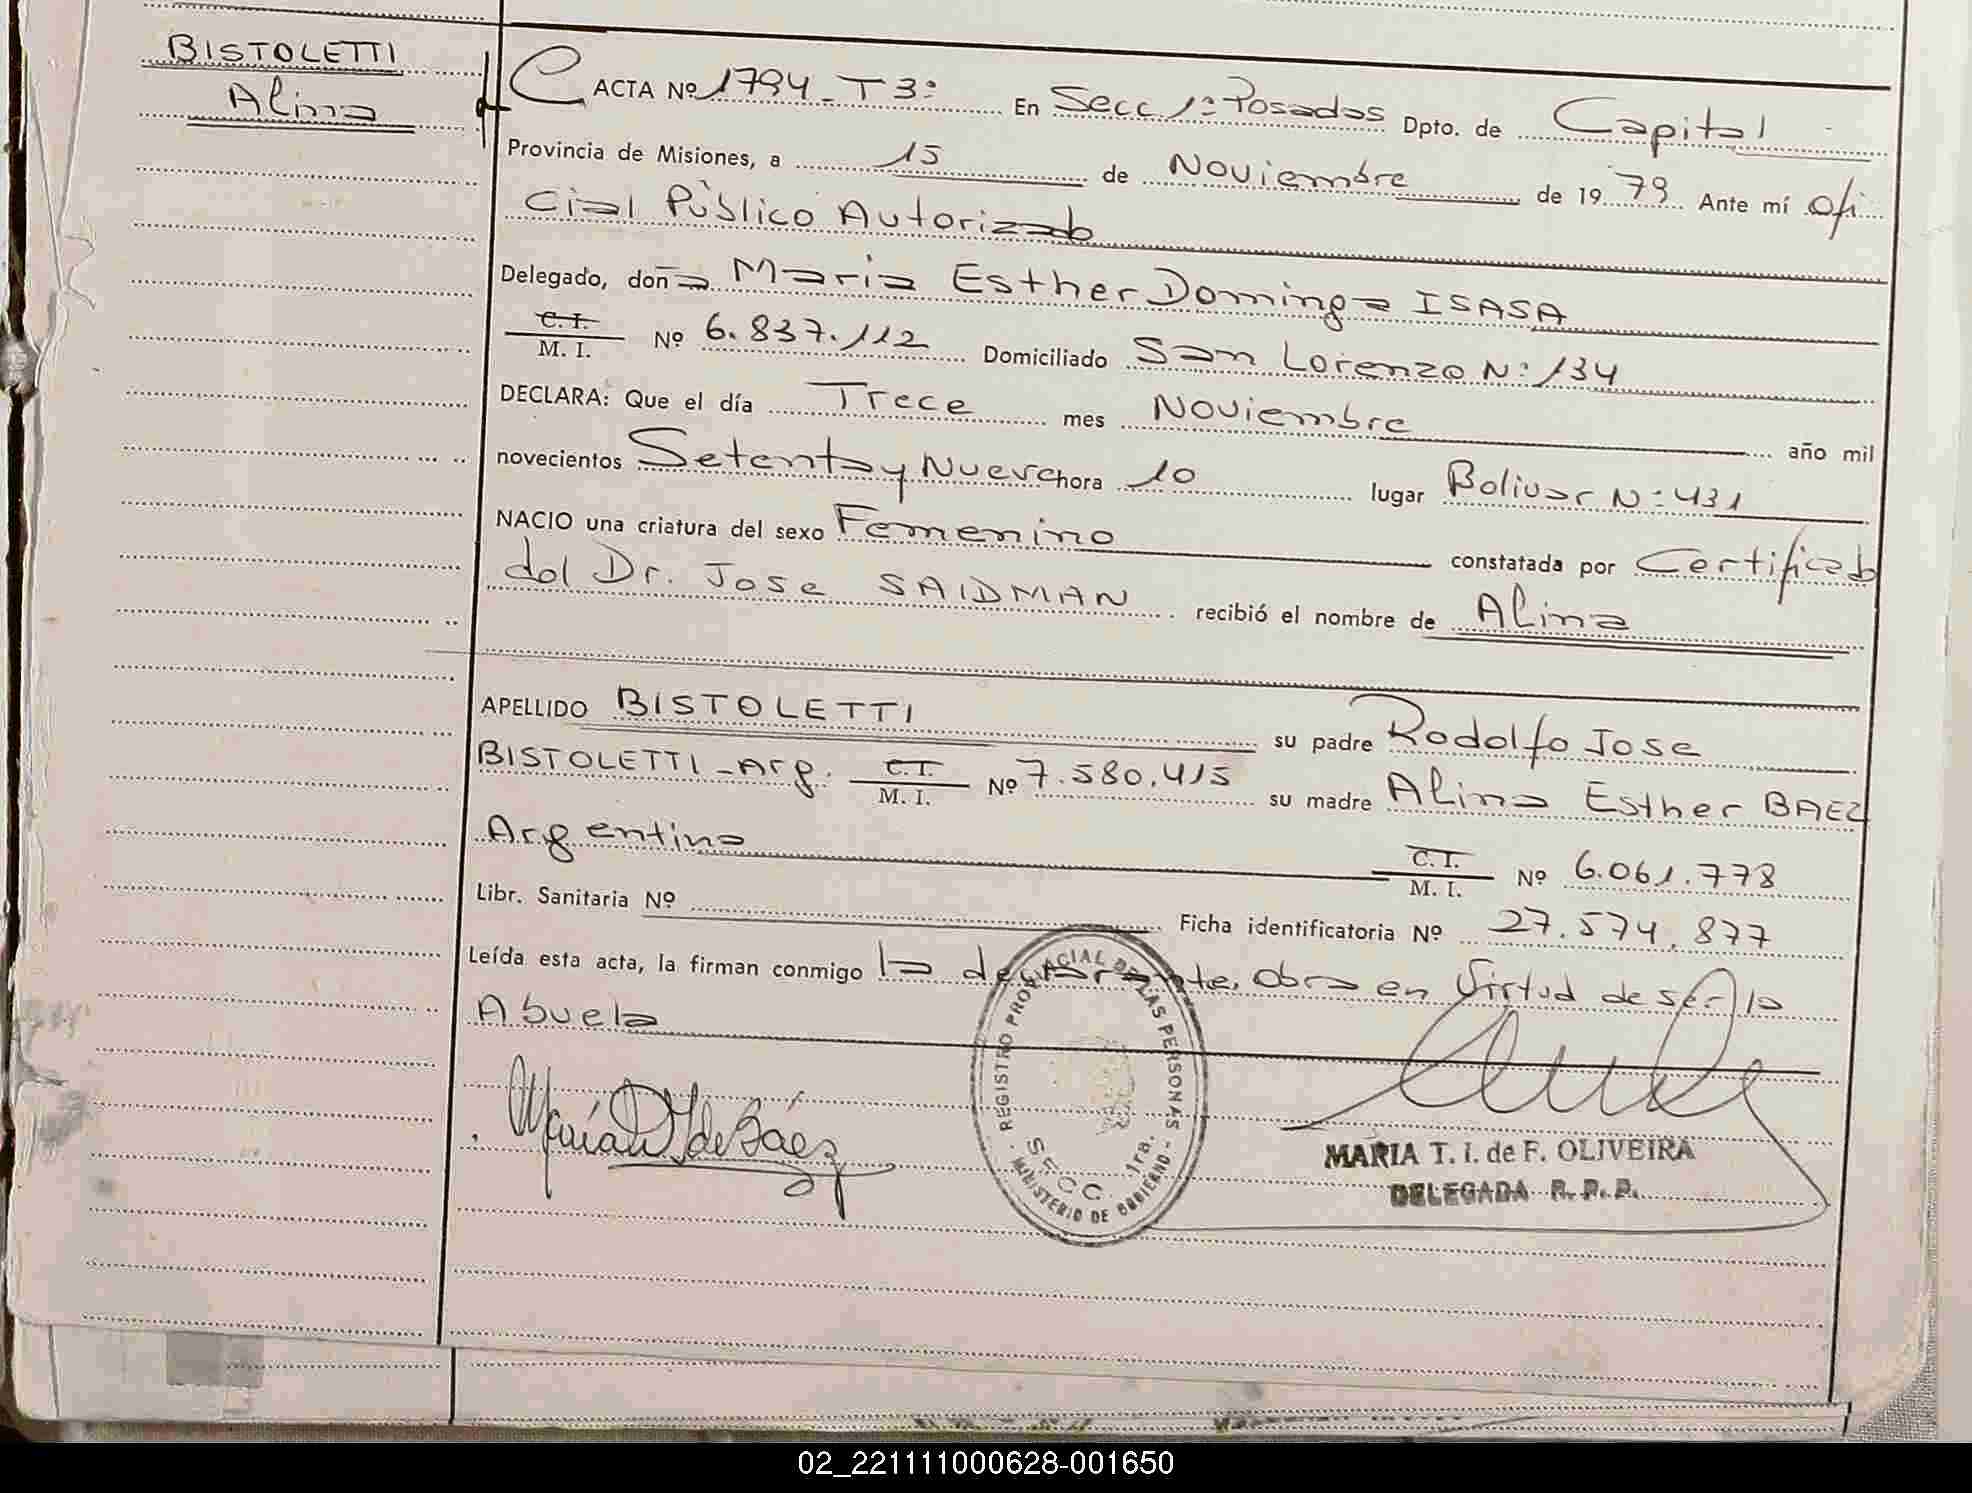 BISTOLETTI
Alina
ACTA Nº 1794 - T 3º En Secc 1º Posadas Dpto. de Capital
Provincia de Misiones, a 15 de Noviembre de 1979 Ante mí Ofi
cial Público Autorizado
Delegado, doña Maria Esther Dominga ISASA
C. I.
M. I. Nº 6.837.112 Domiciliado San Lorenzo Nº 134
DECLARA: Que el día Trece mes Noviembre año mil
novecientos Setenta y Nueve hora 10 lugar Bolivar Nº 431
NACIO una criatura del sexo Femenino constatada por Certificado
del Dr. Jose SAIDMAN recibió el nombre de Alina
APELLIDO BISTOLETTI su padre Rodolfo Jose
BISTOLETTI - Arg. C. I. M. I. Nº 7.580.415 su madre Alina Esther BAEZ
Argentina C. I. M. I. Nº 6.061.778
Libr. Sanitaria Nº Ficha identificatoria Nº 27.574.877
Leída esta acta, la firman conmigo la declarante, Obra en Virtud de ser la
Abuela
María D I de Báez
REGISTRO PROVINCIAL DE LAS PERSONAS - MINISTERIO DE GOBIERNO -
SECC. 1ra.
MARIA T. I. de F. OLIVEIRA
DELEGADA R. P. P.
02_221111000628-001650